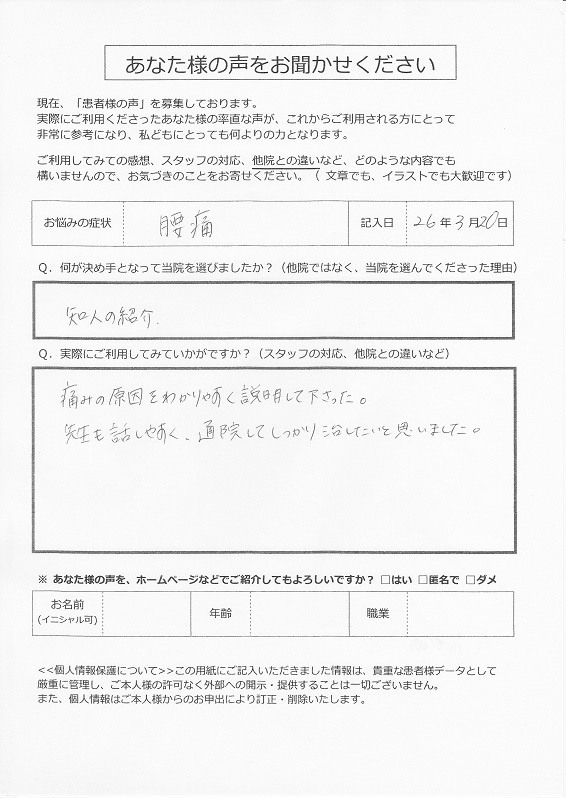 あなた様の声をお聞かせください
現在、「患者様の声」を募集しております。
実際にご利用くださったあなた様の率直な声が、これからご利用される方にとって
非常に参考になり、私どもにとっても何よりの力となります。
ご利用してみての感想、スタッフの対応、他院との違いなど、どのような内容でも
構いませんので、お気づきのことをお寄せください。（ 文章でも、イラストでも大歓迎です）
お悩みの症状 腰痛 記入日 26年3月20日
Q．何が決め手となって当院を選びましたか？（他院ではなく、当院を選んでくださった理由）
知人の紹介.
Q．実際にご利用してみていかがですか？（スタッフの対応、他院との違いなど）
痛みの原因をわかりやすく説明して下さった。
先生も話しやすく、通院してしっかり治したいと思いました。
※ あなた様の声を、ホームページなどでご紹介してもよろしいですか？ □はい □匿名で □ダメ
お名前 年齢 職業
(イニシャル可)
<<個人情報保護について>>この用紙にご記入いただきました情報は、貴重な患者様データとして
厳重に管理し、ご本人様の許可なく外部への開示・提供することは一切ございません。
また、個人情報はご本人様からのお申出により訂正・削除いたします。